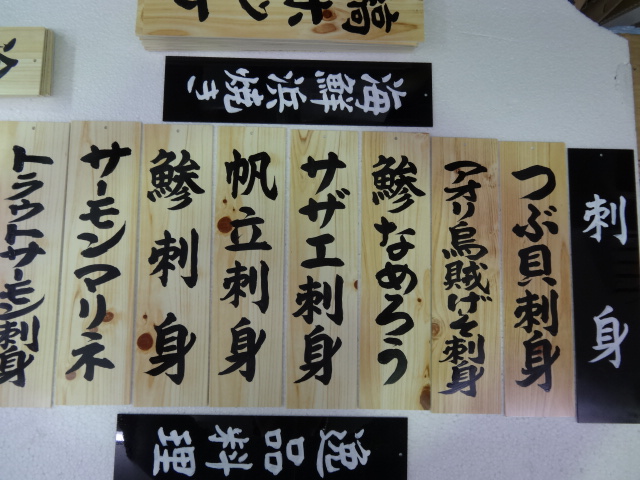 海鮮浜焼き
刺身
つぶ貝刺身
アオリ烏賊げそ刺身
鯵なめろう
サザエ刺身
帆立刺身
鯵刺身
サーモンマリネ
トラウトサーモン刺身
逸品料理